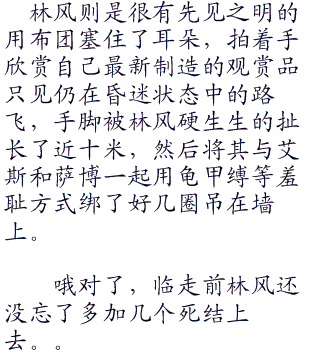 林风则是很有先见之明的
用布团塞住了耳朵，拍着手
欣赏自己最新制造的观赏品
只见仍在昏迷状态中的路
飞，手脚被林风硬生生的扯
长了近十米，然后将其与艾
斯和萨博一起用龟甲缚等羞
耻方式绑了好几圈吊在墙
上。
哦对了，临走前林风还
没忘了多加几个死结上
去。。